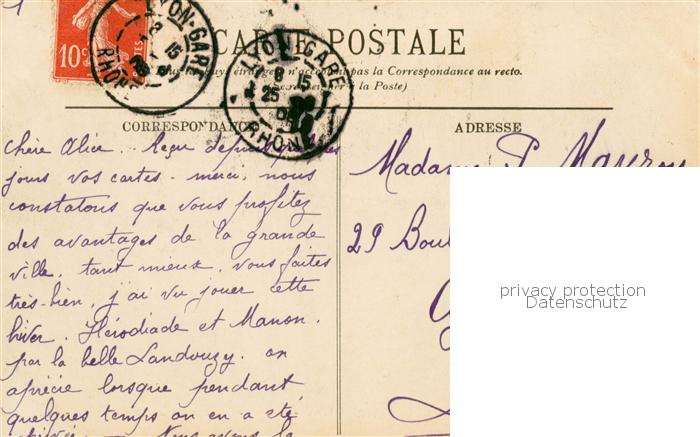 10c
LYON-GARE
RHONE
LYON-GARE
8 15
25
RHONE
CARTE POSTALE
n'acceptent pas la Correspondance au recto.
à la Poste)
CORRESPONDANCE
ADRESSE
Chère Alice. Reçu depuis
jours vos cartes - merci, nous
constatons que vous profitez
des avantages de la grande
ville, tant mieux, vous faites
très-bien, j'ai vu jouer cette
hiver. Hérodiade et Manon.
par la belle Landouzy. on
aprécie lorsque pendant
quelques temps on en a été
Nous avons la
Madame P.
29 Boul
privacy protection
Datenschutz